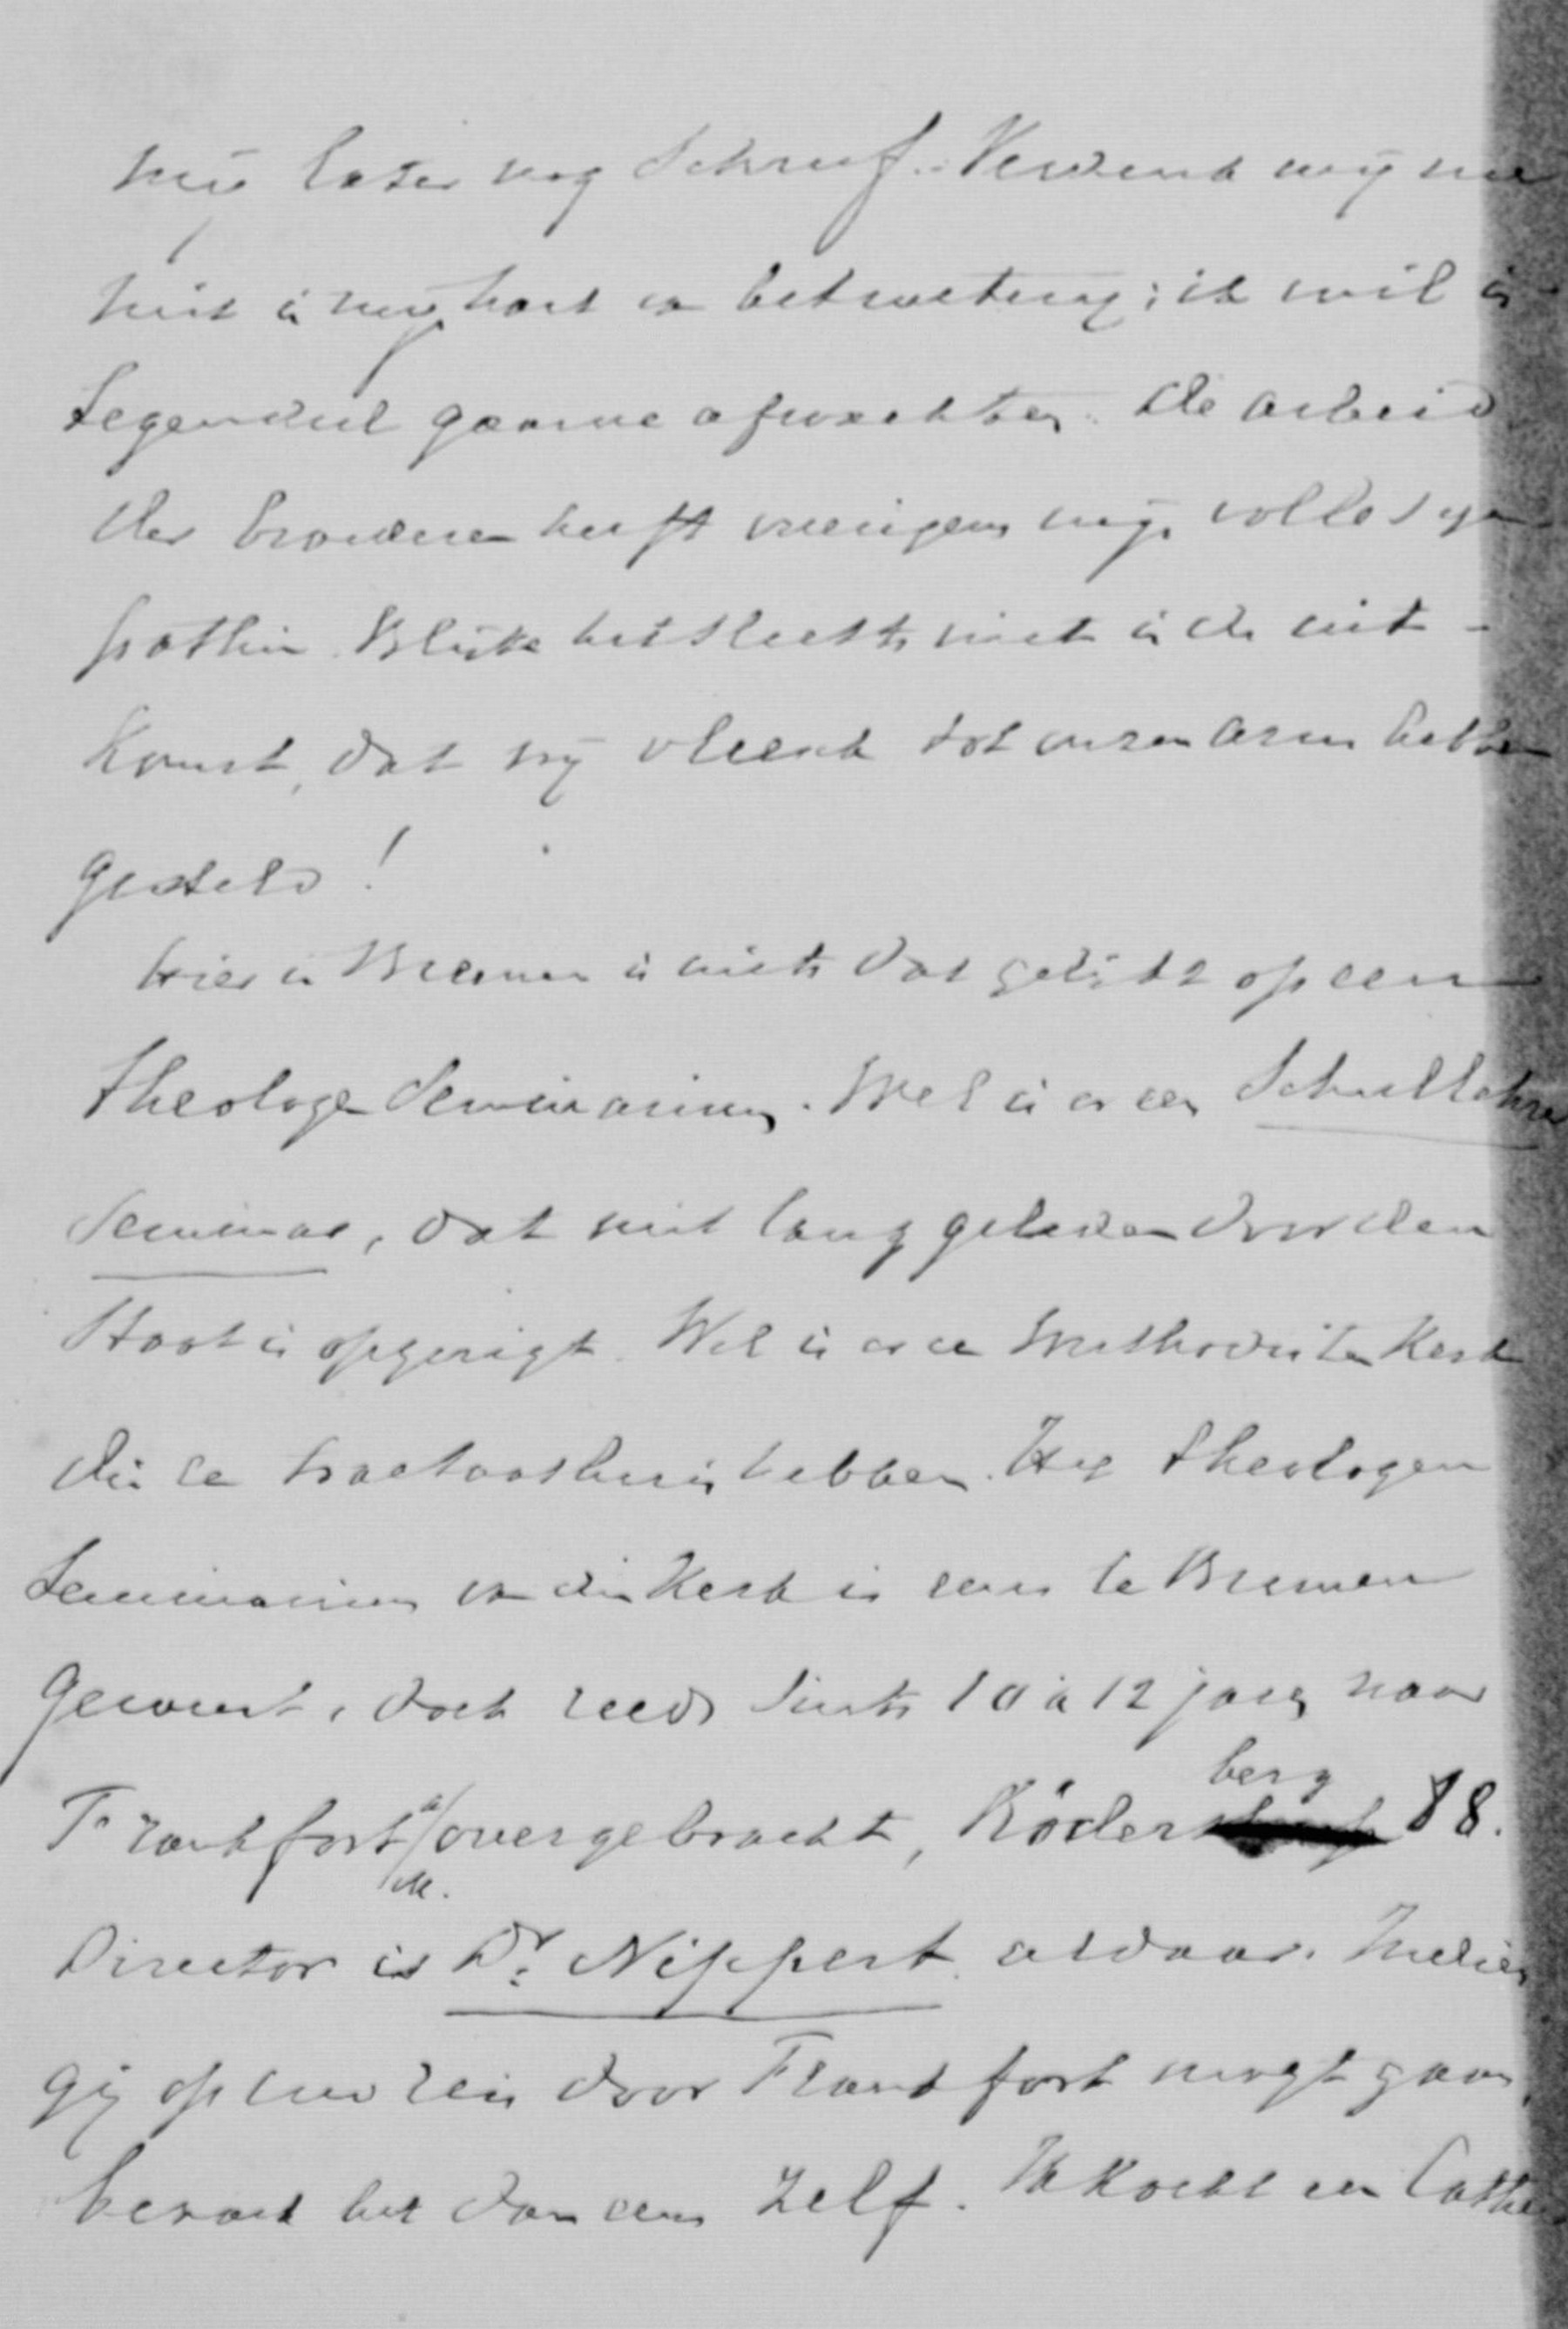 mij later nog schreef. Verdenk mij nu
niet in mijn hart van betweterij; ik wil in
tegendeel gaarne afwachten. De arbeid
der broederen heeft overigens mijn volle sym
pathie. Blijke het slechts niet in de uit-
komst, dat wij vleesch tot onzen arm hebben
gesteld!
Hier in Bremen is niets dat gelijkt op een
theologen Seminarium. Wel is er een Schullehrer
Seminar, dat niet lang geleden door den
Staat is opgerigt. Wel is er een Methodisten Kerk
die een tractaathuis hebben. Het theologen
Seminarium van die Kerk is eens te Bremen
geweest, doch reeds sints 10 à 12 jaren naar
Frankfort a/M. overgebracht, Röderberg 88.
Director is Dr. Nippert aldaar. Indien
gij op uw reis door Frankfort mogt gaan,
bezoek het dan eens zelf. Ik kocht een